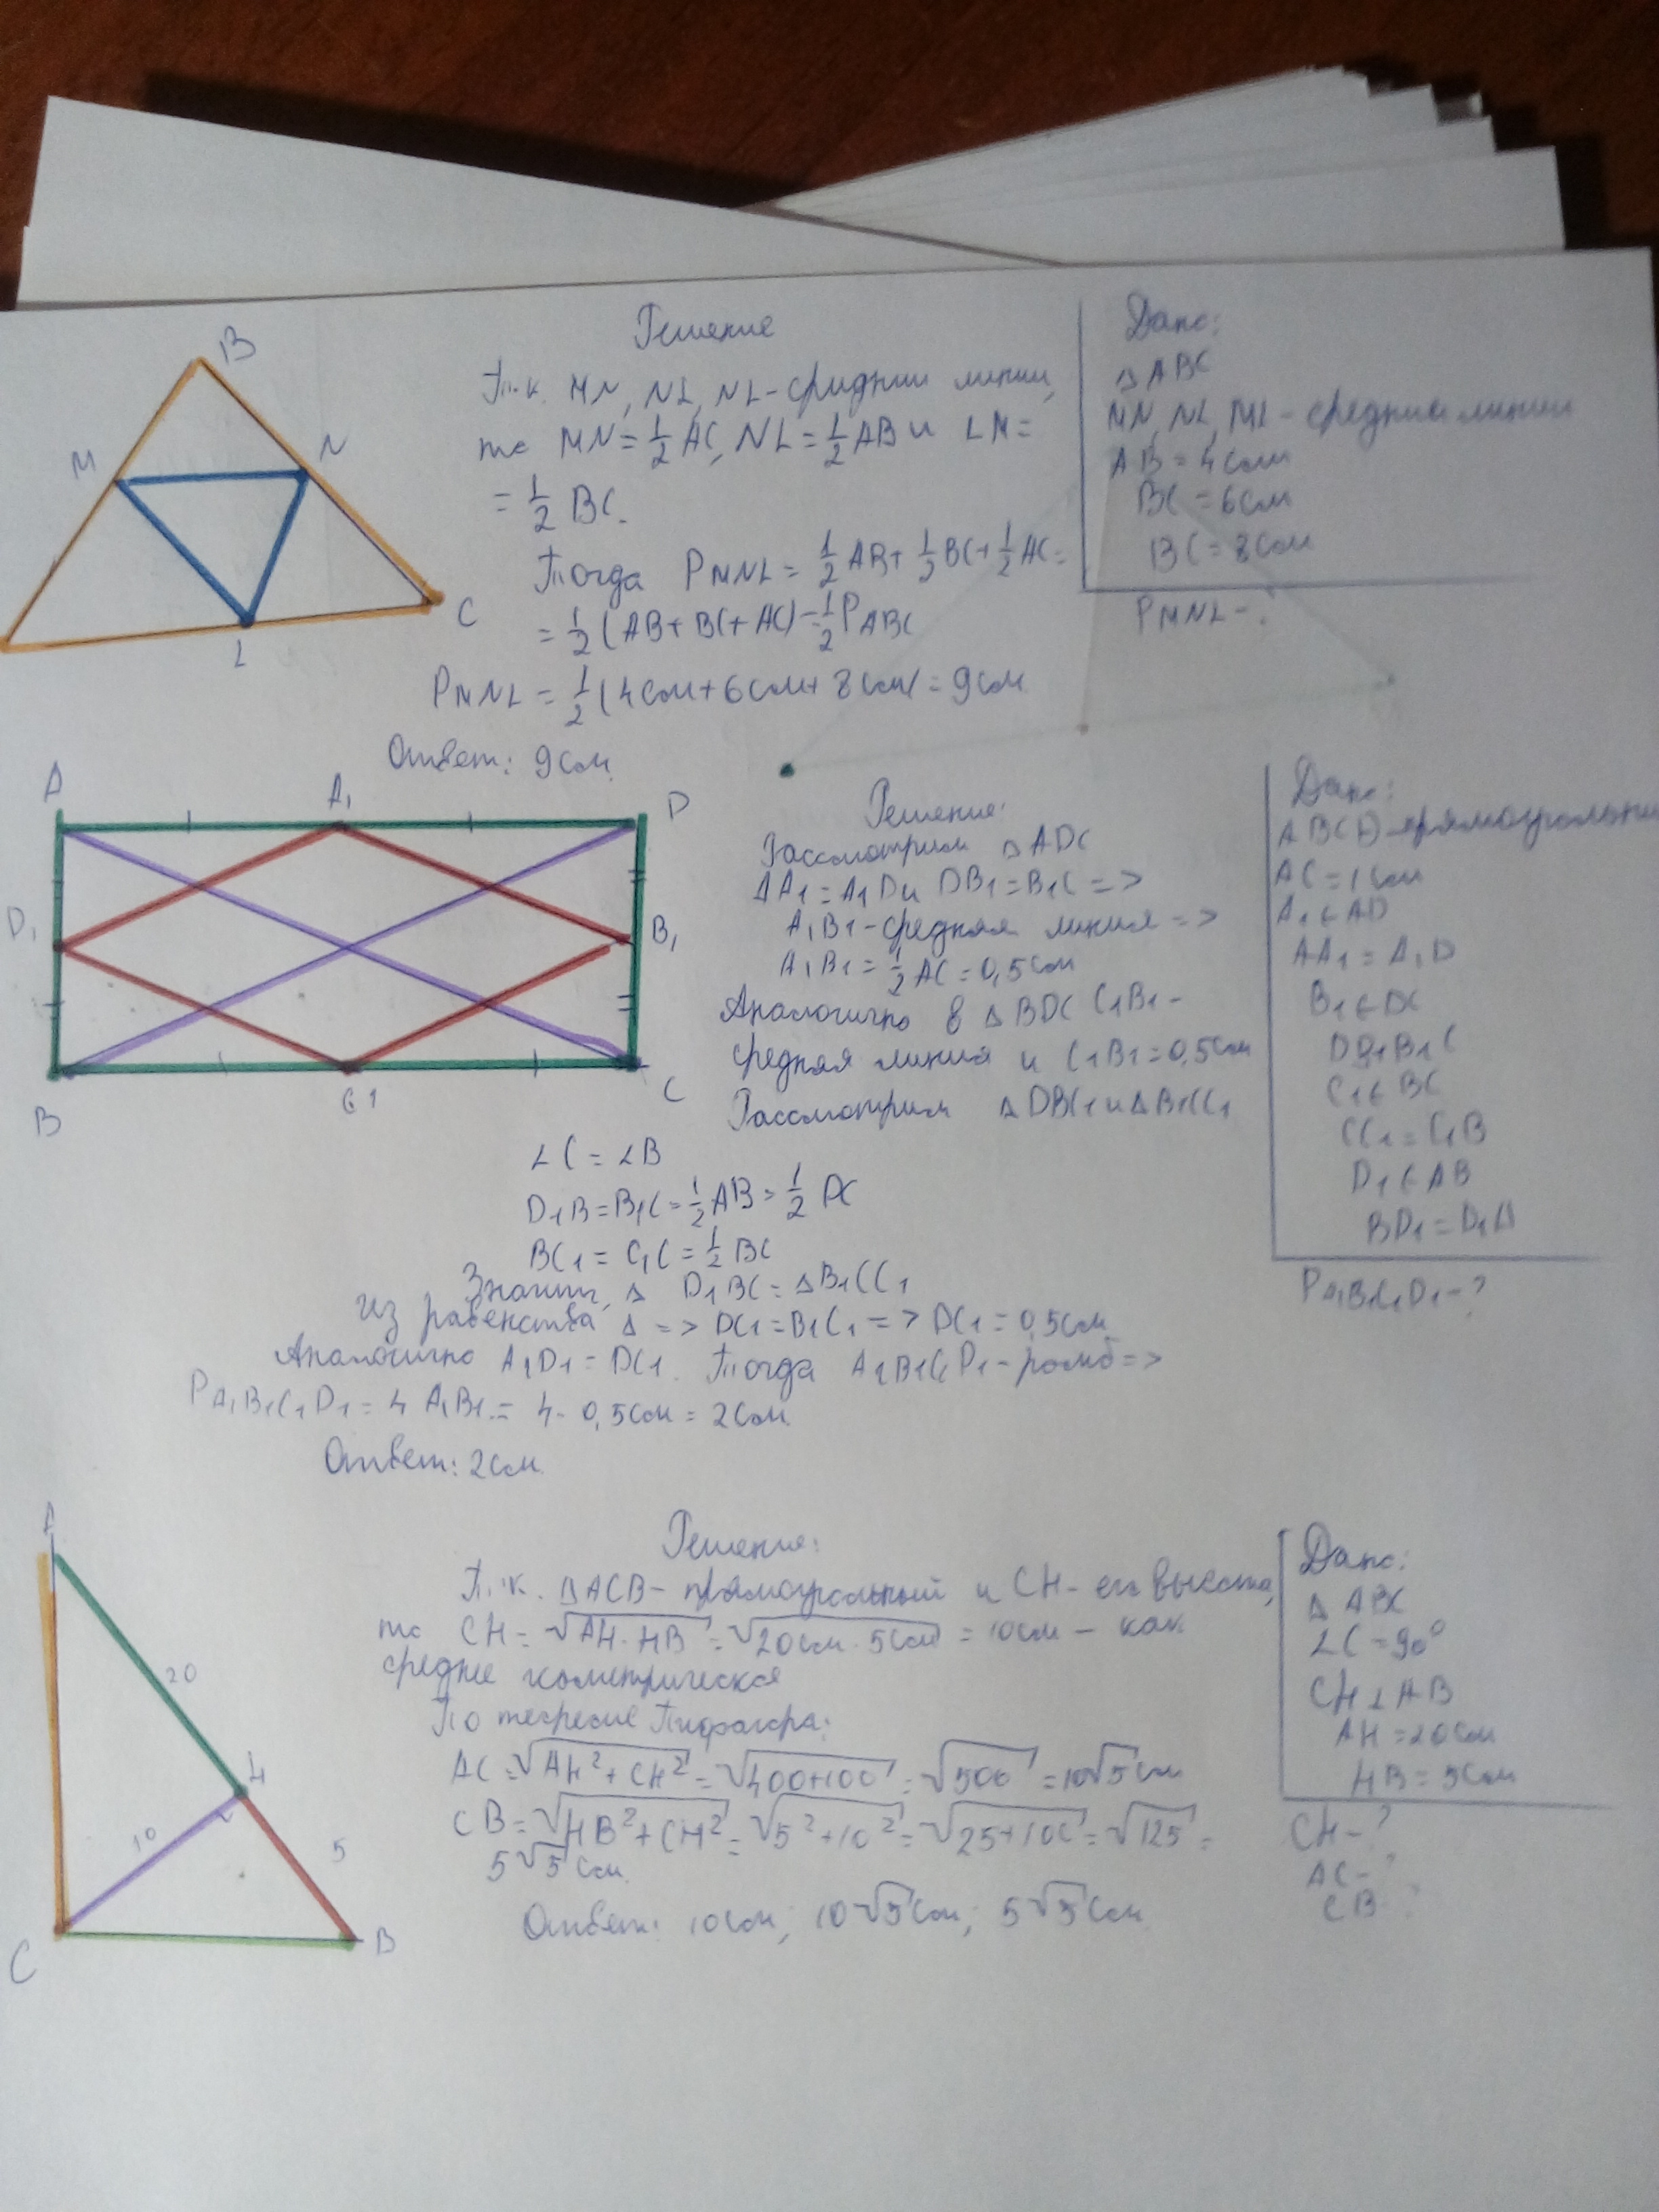 Решение
Т.к. MN, NL, NL - среднии линии,
то MN = 1/2 AC, NL = 1/2 AB и LM =
= 1/2 BC.
Тогда PMNL = 1/2 AB + 1/2 BC + 1/2 AC =
= 1/2 (AB + BC + AC) = 1/2 PABC
PMNL = 1/2 (4см + 6см + 8см) = 9см
Ответ: 9см.
Дано:
△ ABC
MN, NL, ML - средние линии
AB = 4см
BC = 6см
BC = 8см
PMNL - ?
B
M
N
C
L
Решение:
Рассмотрим △ ADC
AA1 = A1D и DB1 = B1C =>
A1B1 - средняя линия =>
A1B1 = 1/2 AC = 0,5см
Аналогично в △ BDC C1B1 -
средняя линия и C1B1 = 0,5см
Рассмотрим △ DBC1 и △ B1CC1
∠C = ∠B
D1B = B1C = 1/2 AB = 1/2 DC
BC1 = C1C = 1/2 BC
Значит, △ D1BC = △ B1CC1
Из равенства △ => DC1 = B1C1 => DC1 = 0,5см
Аналогично A1D1 = DC1. Тогда A1B1C1D1 - ромб =>
PA1B1C1D1 = 4 A1B1 = 4 · 0,5см = 2см.
Ответ: 2см.
Дано:
ABCD - прямоугольник
AC = 1см
A1 ∈ AD
AA1 = A1D
B1 ∈ DC
DB1B1C
C1 ∈ BC
CC1 = C1B
D1 ∈ AB
BD1 = D1A
PA1B1C1D1 - ?
A
A1
D
D1
B1
B
C1
C
Решение:
Т.к. △ ACB - прямоугольный и CH - его высота,
то CH = √AH · HB = √20см · 5см = 10см - как
среднее геометрическое
По теореме Пифагора:
AC = √AH² + CH² = √400+100 = √500 = 10√5 см
CB = √HB² + CH² = √5² + 10² = √25+100 = √125 =
5√5 см
Ответ: 10см; 10√5 см; 5√5 см
Дано:
△ ABC
∠C = 90°
CH ⊥ AB
AH = 20см
HB = 5см
CH - ?
AC - ?
CB ?
A
20
H
10
5
C
B